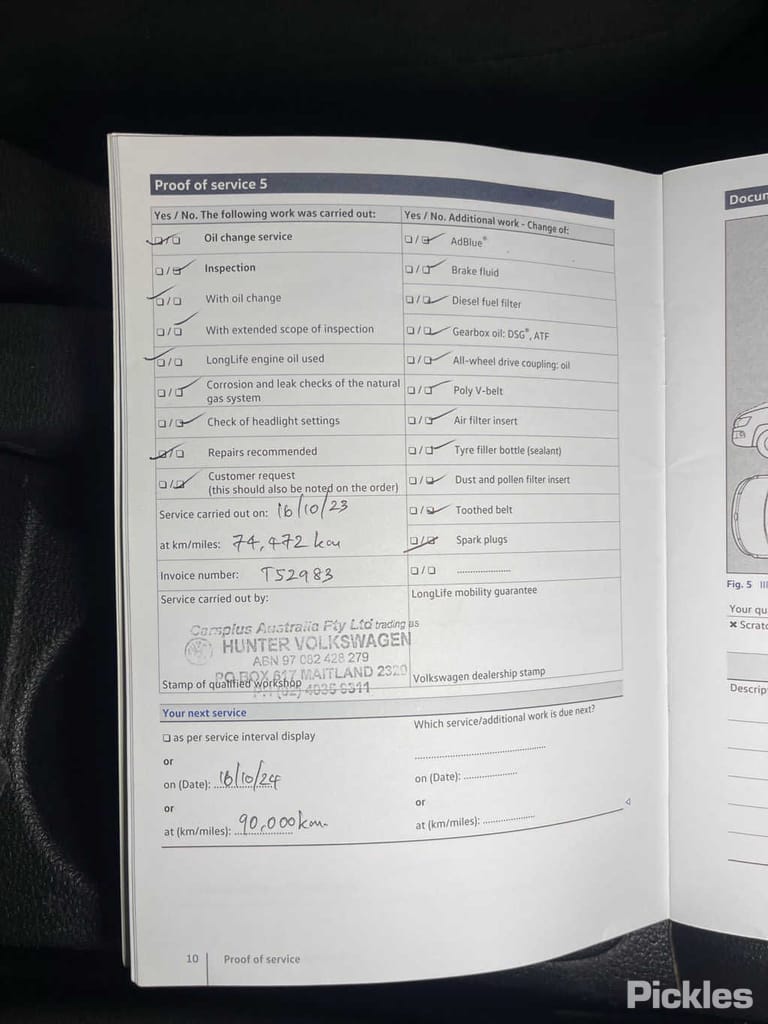 Proof of service 5
Yes / No. The following work was carried out:
❏/❏ Oil change service
❏/❏ Inspection
❏/❏ With oil change
❏/❏ With extended scope of inspection
❏/❏ LongLife engine oil used
❏/❏ Corrosion and leak checks of the natural
gas system
❏/❏ Check of headlight settings
❏/❏ Repairs recommended
❏/❏ Customer request
(this should also be noted on the order)
Service carried out on: 16/10/23
at km/miles: 74,472 km
Invoice number: T52983
Service carried out by:
Carsplus Australia Pty Ltd trading as
HUNTER VOLKSWAGEN
ABN 97 082 428 279
PO BOX 617 MAITLAND 2320
Stamp of qualified workshop
Yes / No. Additional work - Change of:
❏/❏ AdBlue®
❏/❏ Brake fluid
❏/❏ Diesel fuel filter
❏/❏ Gearbox oil: DSG®, ATF
❏/❏ All-wheel drive coupling: oil
❏/❏ Poly V-belt
❏/❏ Air filter insert
❏/❏ Tyre filler bottle (sealant)
❏/❏ Dust and pollen filter insert
❏/❏ Toothed belt
❏/❏ Spark plugs
❏/❏ ....................
LongLife mobility guarantee
Volkswagen dealership stamp
Your next service
❏ as per service interval display
or
on (Date): 16/10/24
or
at (km/miles): 90,000 km
Which service/additional work is due next?
on (Date): ....................
or
at (km/miles): ....................
10 Proof of service
Docum
Fig. 5 Ill
Your qu
✖ Scratc
Descrip
Pickles